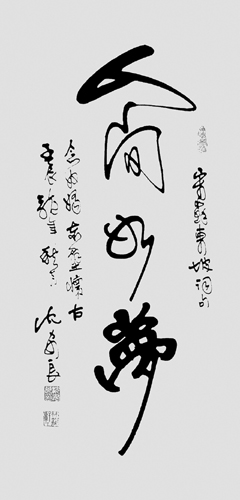 宋苏东坡词句
人间如梦
念奴娇赤壁怀古
壬辰龙年秋